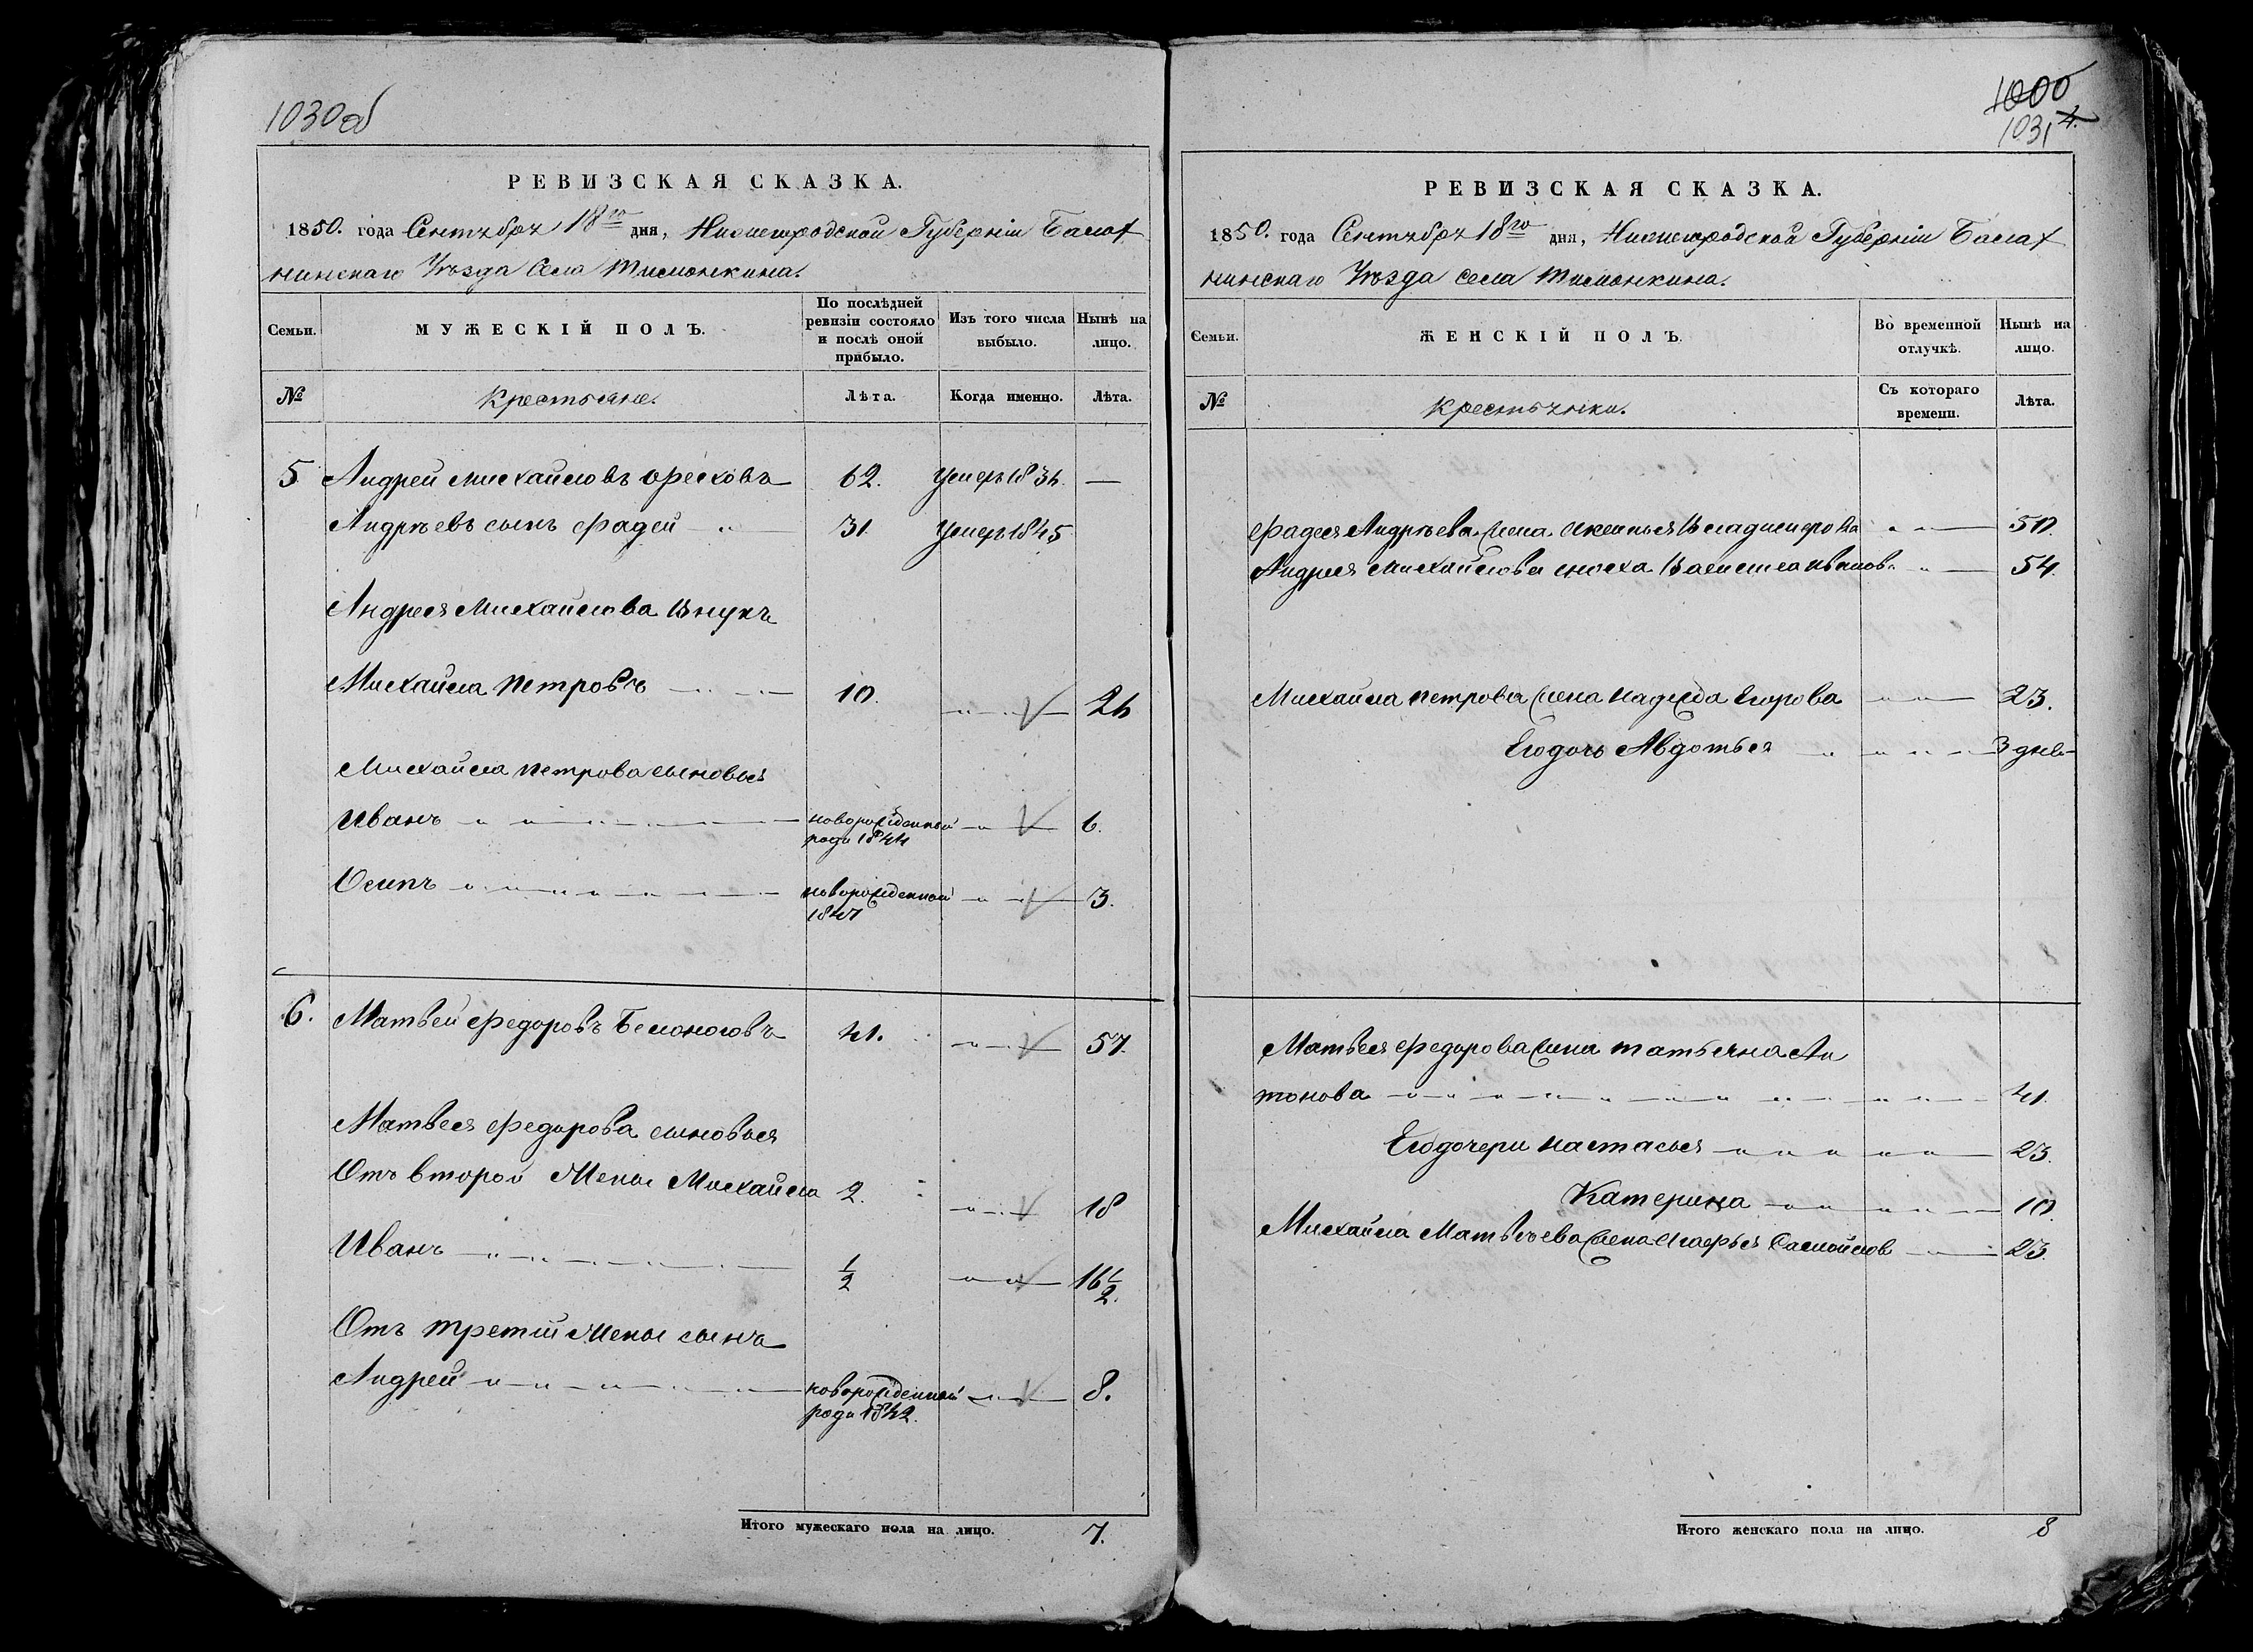 1030об
РЕВИЗСКАЯ СКАЗКА.
1850. года Сентября 18го дня, Нижегородской Губерніи Балах
нинскаго Уѣзда Села
Семьи.
МУЖЕСКІЙ ПОЛЪ.
По послѣдней
ревизіи состояло
и послѣ оной
прибыло.
Изъ того числа
выбыло.
Нынѣ на
лицо.
№
Крестьяне.
Лѣта.
Когда именно.
Лѣта.
5 Андрей Михайловъ 62. умеръ 1834. —
Андрѣевъ сынъ Фадей 31. умеръ 1845
Андрея Михайлова Внукъ
Михайла Петровъ 10. 26
Михайла Петрова сыновья
Иванъ новорожденной 6.
роди 1844
Осипъ новорожденной 3.
1847
6. Матвей Федоровъ Белоноговъ 41. 57.
Матвея Федорова сыновья
Отъ второй Жены Михайла 2. 18
Иванъ 1/2 16 1/2.
Отъ третій Жены сынъ
Андрей новорожденной 8.
роди 1842.
Итого мужескаго пола на лицо. 7.
1000
4.
1031
РЕВИЗСКАЯ СКАЗКА.
1850. года Сентября 18го дня, Нижегородской Губерніи Балах
нинскаго Уѣзда Села
Семьи.
ЖЕНСКІЙ ПОЛЪ.
Во временной
отлучкѣ.
Нынѣ на
лицо.
№
Крестьянки.
Съ котораго
времени.
Лѣта.
Фадея Андрѣева жена Аксинья Владимерова 50.
Андрея Михайлова сноха Васи­лиса Иванов. 54.
Михайла Петрова жена Надежда Егорова 23.
Его дочь Авдотья 3 дне
Матвея Федорова жена Татьяна Ан
тонова 41.
Его дочери Настасья 23.
Катерина 10.
Михайла Матвѣева жена Марья Самойлов 23.
Итого женскаго пола на лицо. 8